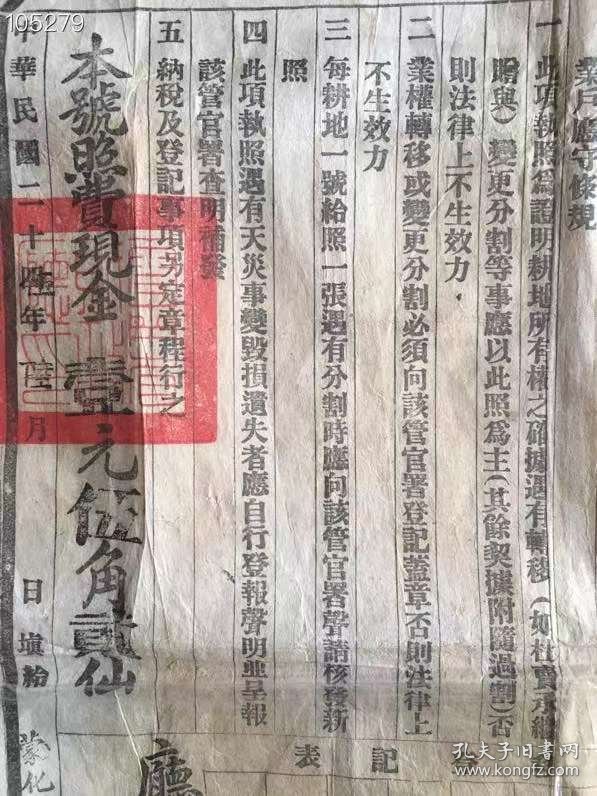 105279
業戶應守條規
一 此項執照爲證明耕地所有權之確據遇有轉移(如杜賣承繼
贈與)變更分割等事應以此照爲主(其餘契據附隨過割)否
則法律上不生效力
二 業權轉移或變更分割必須向該管官署登記蓋章否則法律上
不生效力
三 每耕地一號給照一張遇有分割時應向該管官署聲請核發新
照
四 此項執照遇有天災事變毀損遺失者應自行登報聲明並呈報
該管官署查明補發
五 納稅及登記事項另定章程行之
本號照費現金壹元伍角貳仙
中華民國二十 年陸月 日填給
記
表
廳
蒙化
孔夫子旧书网
www.kongfz.com